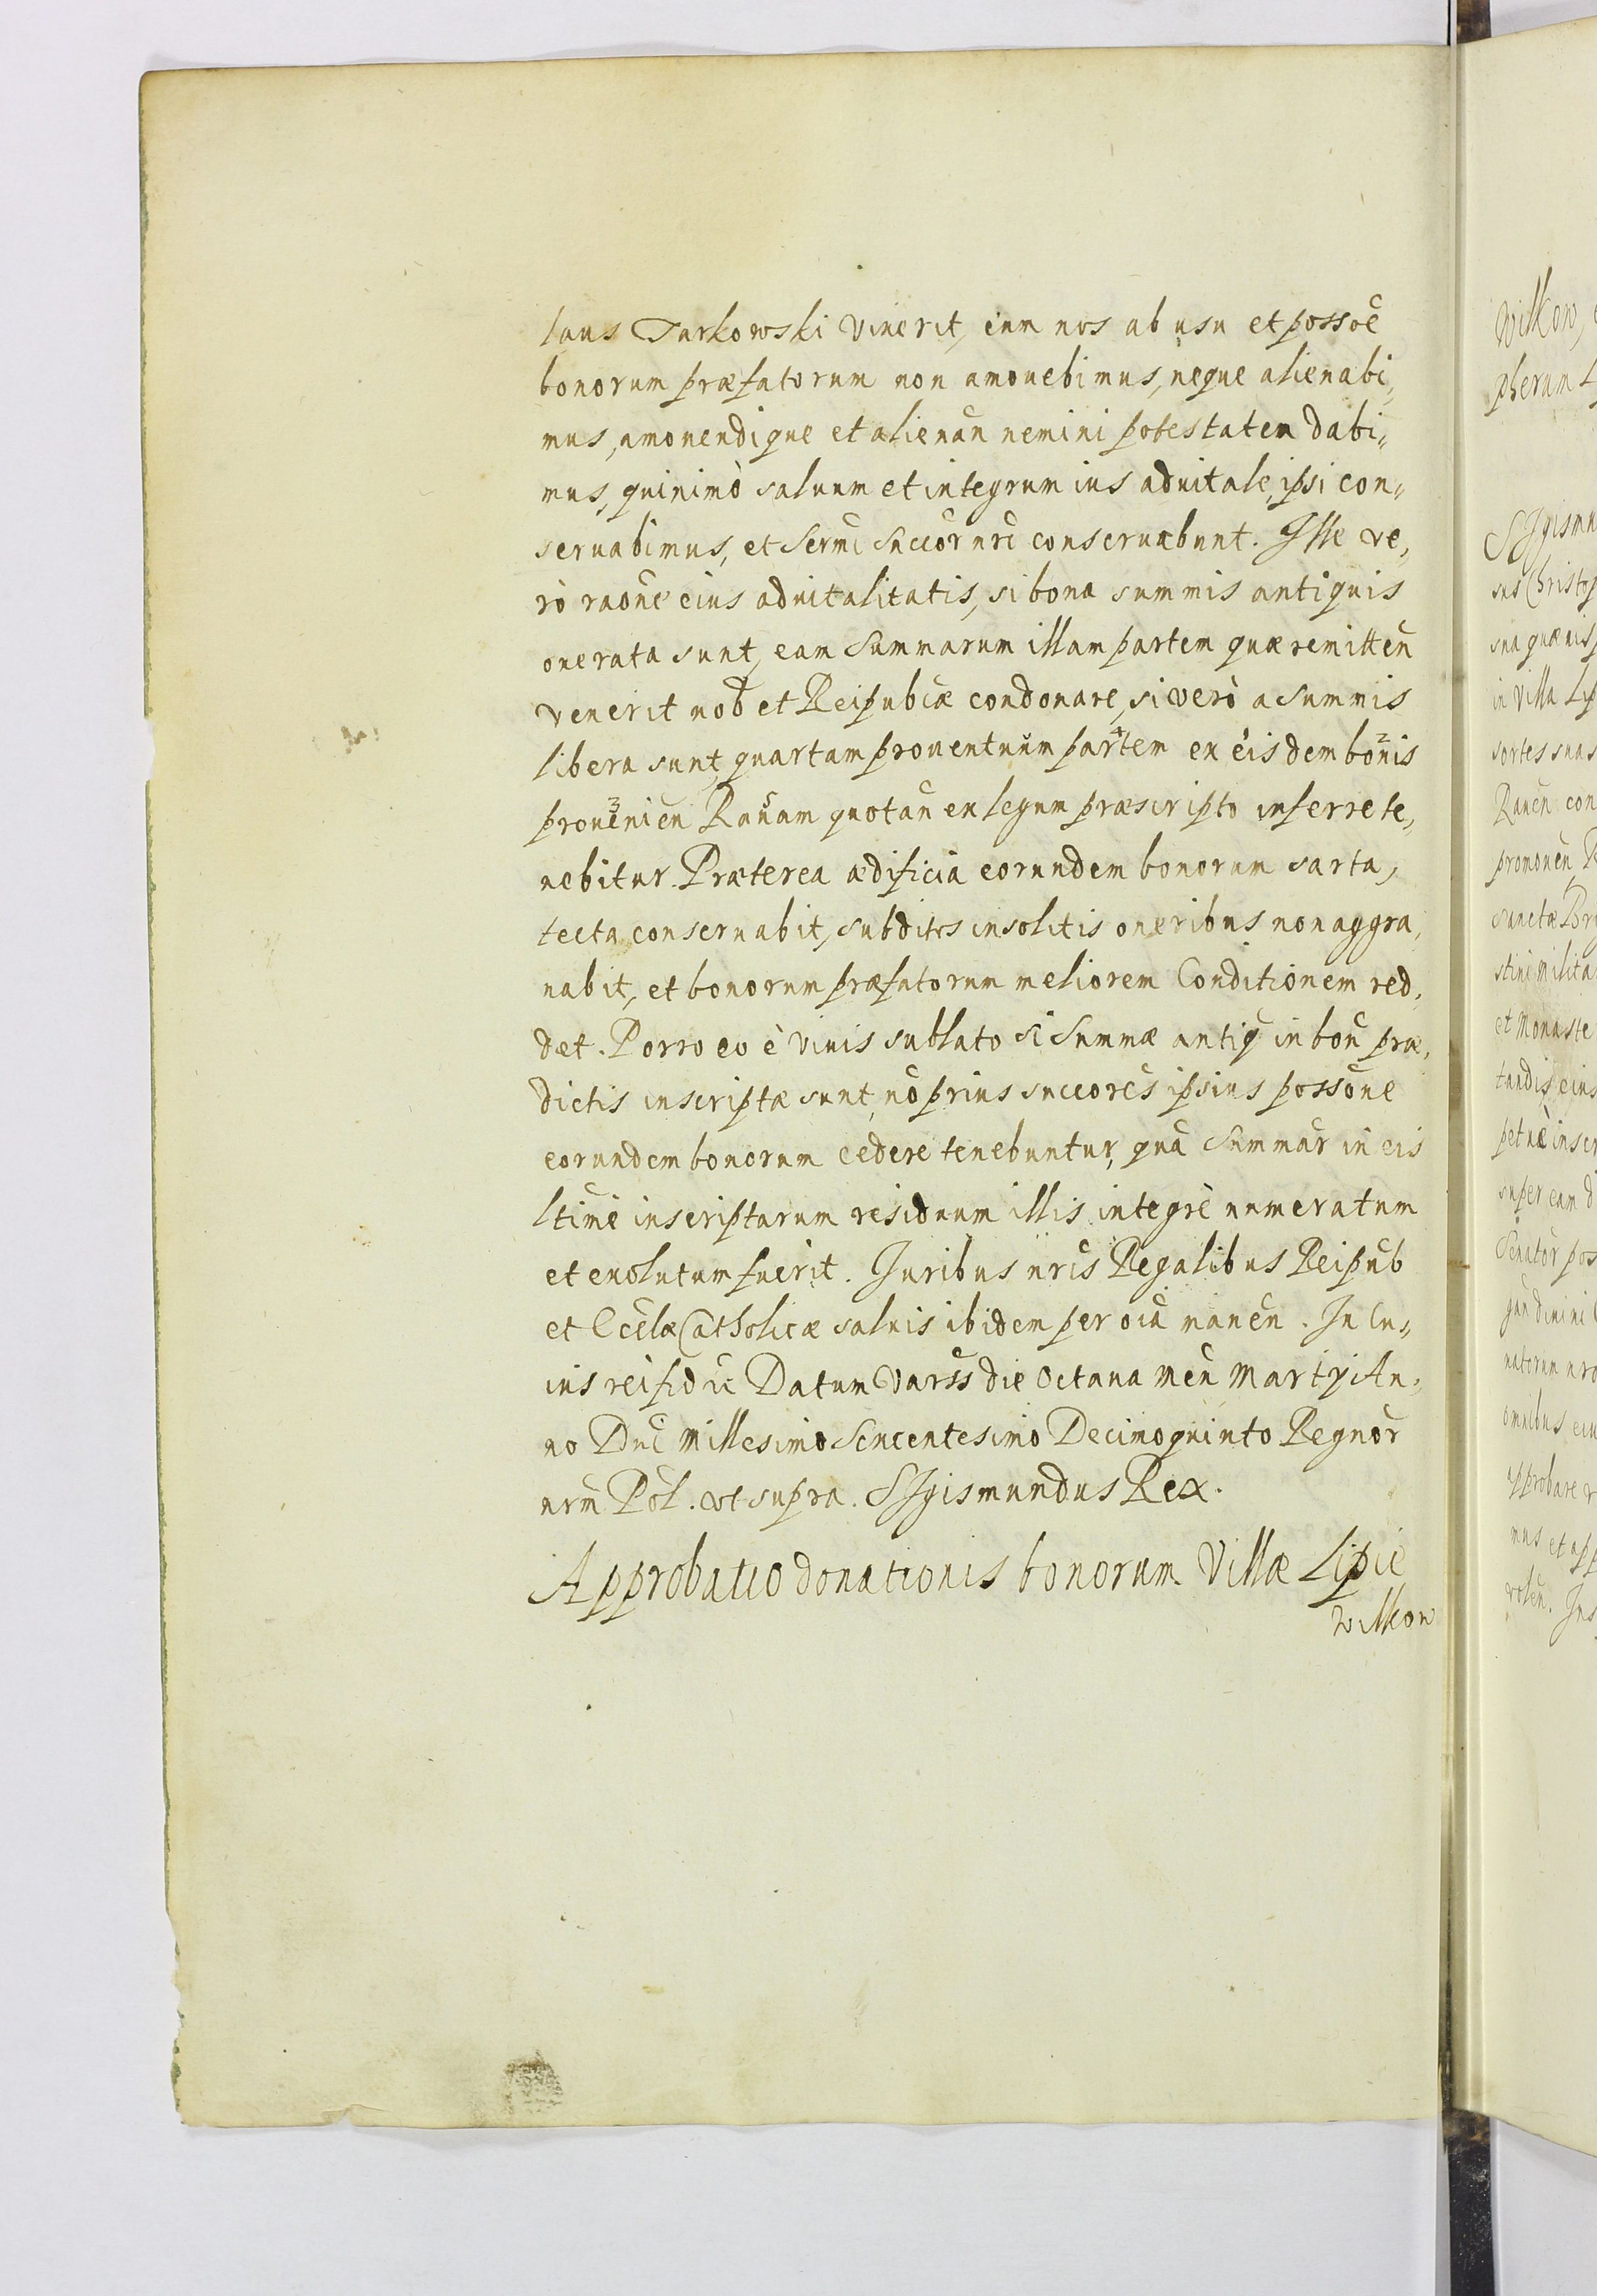 laus Tarkowski vixerit, eum nos ab usu et possoē
bonorum præfatorum non amouebimus, neque alienabi,,
mus, amouendique et alienān nemini potestatem dabi,,
mus, quinimò saluum et integrum ius aduitale, ipsi con,,
seruabimus, et Sermi Succor nri conseruabunt. Ille ve,
rò raōne eius aduitalitatis, si bona summis antiquis
onerata sunt, eam Summarum illam partem quæ remitteñ
venerit nob et Reipubcæ condonare, si verò a summis
libera sunt, quartam prouentuum partem ex eisdem bonis
prouenien Rauam quotan ex legum præscripto inferre te,
nebitur. Præterea ædificia eorundem bonorum sarta,
tecta conseruabit, subditos insolitis oneribus non aggra,
uabit, et bonorum præfatorum meliorem Conditionem red,
det. Porro eo è viuis sublato si Summæ antiq in boñ præ,
dictis inscriptæ sunt, nō prius succores ipsius possone
eorundem bonorum cedere tenebuntur, quā Summar in eis
ltime inscriptarum residuum illis integrè numeratum
et exolutum fuerit. Juribus nris Regalibus Reipub
et Eccłæ Catholicæ saluis ibidem per oīa manen. In Cu,,
ius rei fid ec Datum Varss die Octaua Meñ Martÿ An,
no Dni Millesimo Sexcentesimo Decimoquinto Regnor
nrm Pol. vt supra. SIgismundus Rex.
Approbatio donationis bonorum Villæ Lipie
Wilkow
Wilkow,
pherum
SIgismu
sus Christop
sua quæuis
in Villa Lip
sortes suas
Rauen con
promouen
sanctæ
stini milita
et Monaste
tandis eius
petuè inscr
super eam d
Senator pos
natorum nro
omnibus eiu
approbare
mus et app
volen. Ins